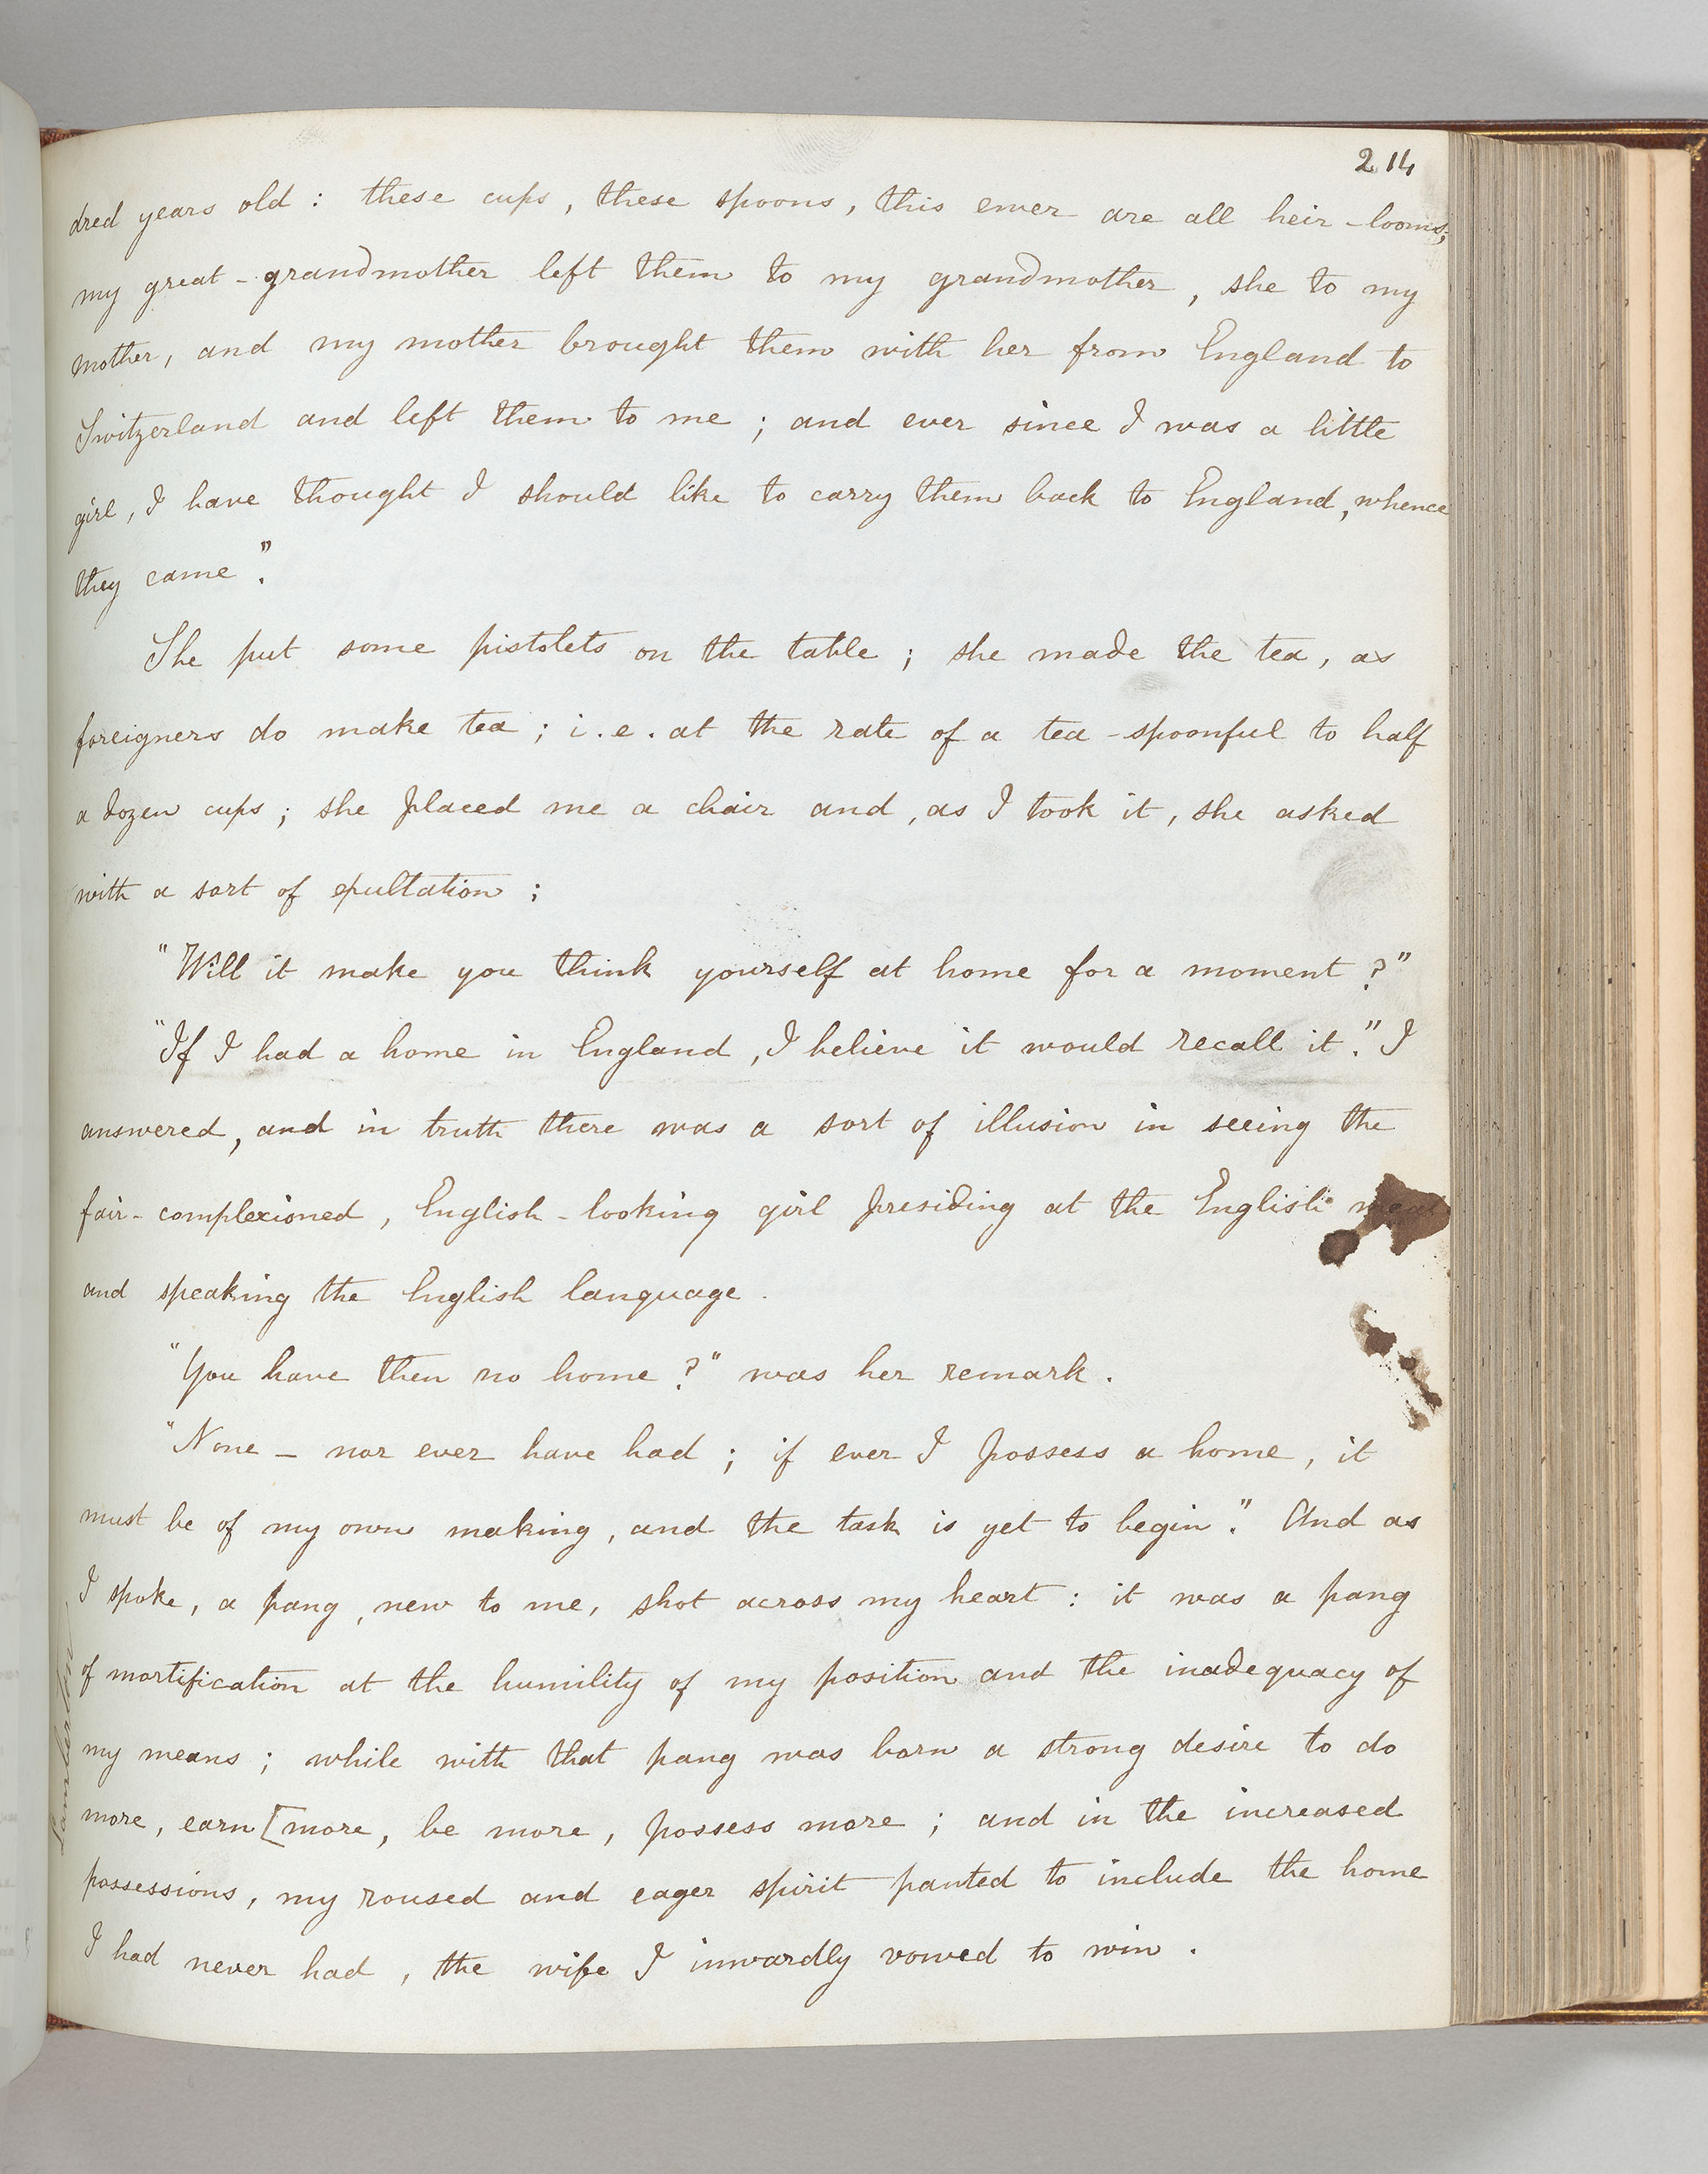 214
dred years old : these cups, these spoons, this ewer are all heir-looms;
my great-grandmother left them to my grandmother, she to my
mother, and my mother brought them with her from England to
Switzerland and left them to me ; and ever since I was a little
girl, I have thought I should like to carry them back to England, whence
they came."
She put some pistolets on the table ; she made the tea, as
foreigners do make tea ; i.e. at the rate of a tea-spoonful to half
a dozen cups ; she placed me a chair and, as I took it, she asked
with a sort of exultation ;
"Will it make you think yourself at home for a moment ?"
"If I had a home in England, I believe it would recall it." I
answered, and in truth there was a sort of illusion in seeing the
fair-complexioned, English-looking girl presiding at the English meal
and speaking the English language.
"You have then no home ?" was her remark.
"None – nor ever have had ; if ever I possess a home, it
must be of my own making, and the task is yet to begin." And as
I spoke, a pang, new to me, shot across my heart : it was a pang
of mortification at the humility of my position and the inadequacy of
my means ; while with that pang was born a strong desire to do
more, earn [more, be more, possess more ; and in the increased
possessions, my roused and eager spirit panted to include the home
I had never had, the wife I inwardly vowed to win.
Lamberton